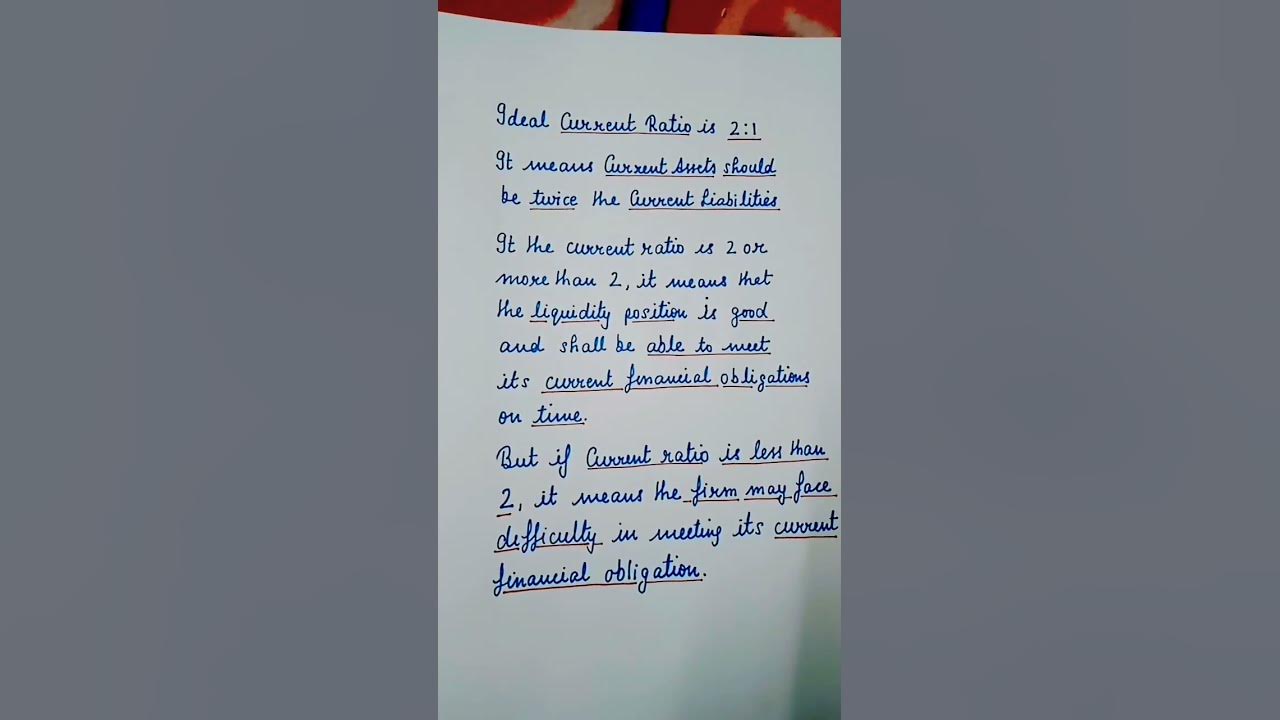 Ideal Current Ratio is 2:1
It means Current Assets should
be twice the Current Liabilities
It the current ratio is 2 or
more than 2, it means thet
the liquidity position is good
and shall be able to meet
its current financial obligations
on time.
But if Current ratio is less than
2, it means the firm may face
difficulty in meeting its current
financial obligation.